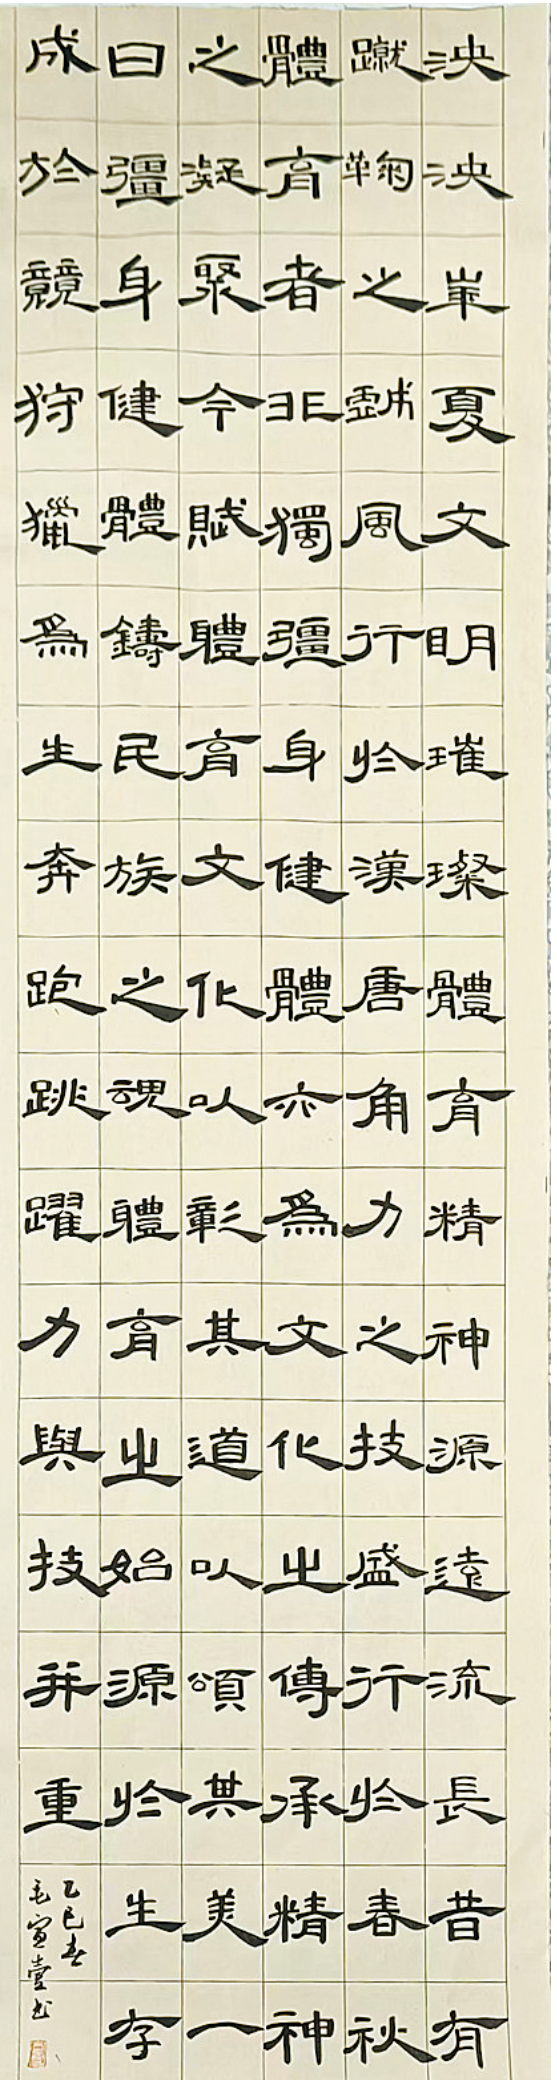 泱泱崋夏文明璀璨體育精神源遠流長昔有
蹴鞠之戲風行於漢唐角力之技盛行於春秋
體育者非獨彊身健體亦爲文化之傳承精神
之凝聚今賦軆育文化以彰其道以頌其美一
曰彊身健體鑄民族之魂軆育之始源於生存
成於競狩獵爲生奔跑跳躍力與技并重
乙巳春
毛宣壹书